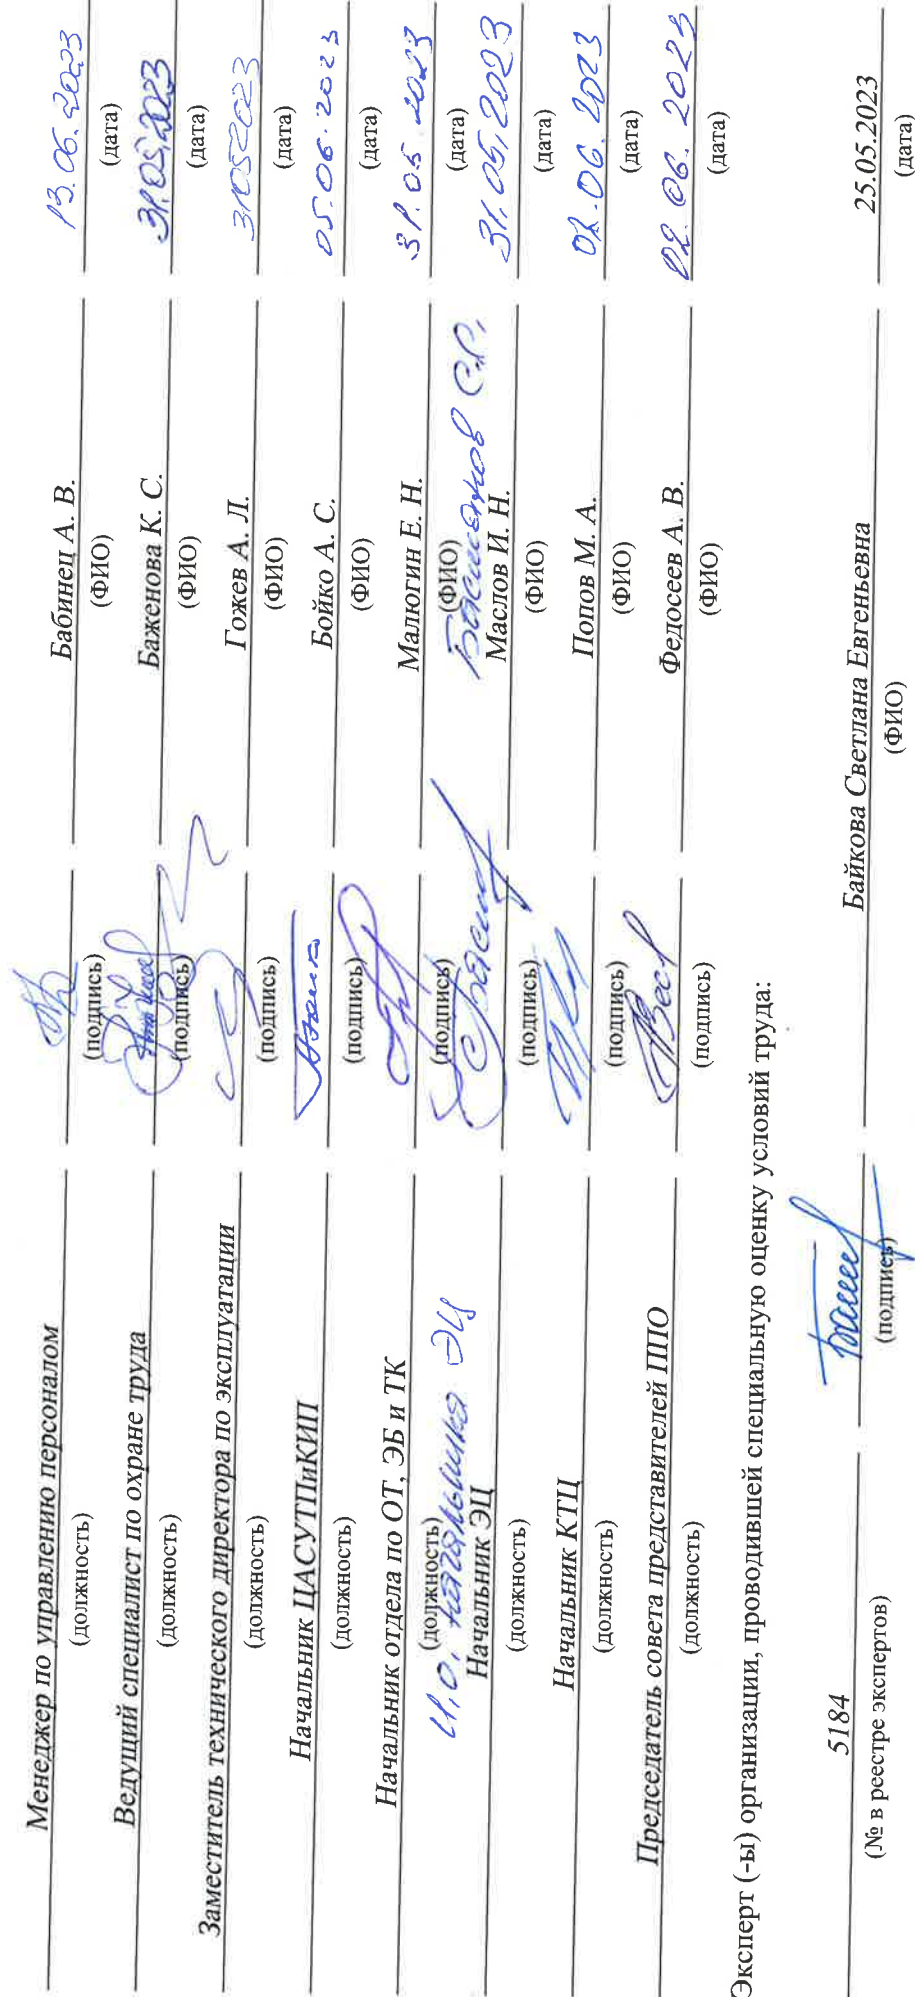 Менеджер по управлению персоналом Бабинец А. В. 13.06.2023
(должность) (подпись) (ФИО) (дата)
Ведущий специалист по охране труда Баженова К. С. 31.05.2023
(должность) (подпись) (ФИО) (дата)
Заместитель технического директора по эксплуатации Гожев А. Л. 31052023
(должность) (подпись) (ФИО) (дата)
Начальник ЦАСУТПиКИП Бойко А. С. 05.06.2023
(должность) (подпись) (ФИО) (дата)
Начальник отдела по ОТ, ЭБ и ТК Малюгин Е. Н. 31.05.2023
(должность) (подпись) (ФИО) (дата)
И.О. начальника ЭЦ
Начальник ЭЦ Маслов И. Н. 31.05.2023
(должность) (подпись) (ФИО) (дата)
Начальник КТЦ Попов М. А. 02.06.2023
(должность) (подпись) (ФИО) (дата)
Председатель совета представителей ППО Федосеев А. В. 02.06.2023
(должность) (подпись) (ФИО) (дата)
Эксперт (-ы) организации, проводившей специальную оценку условий труда:
5184 Байкова Светлана Евгеньевна 25.05.2023
(№ в реестре экспертов) (подпись) (ФИО) (дата)